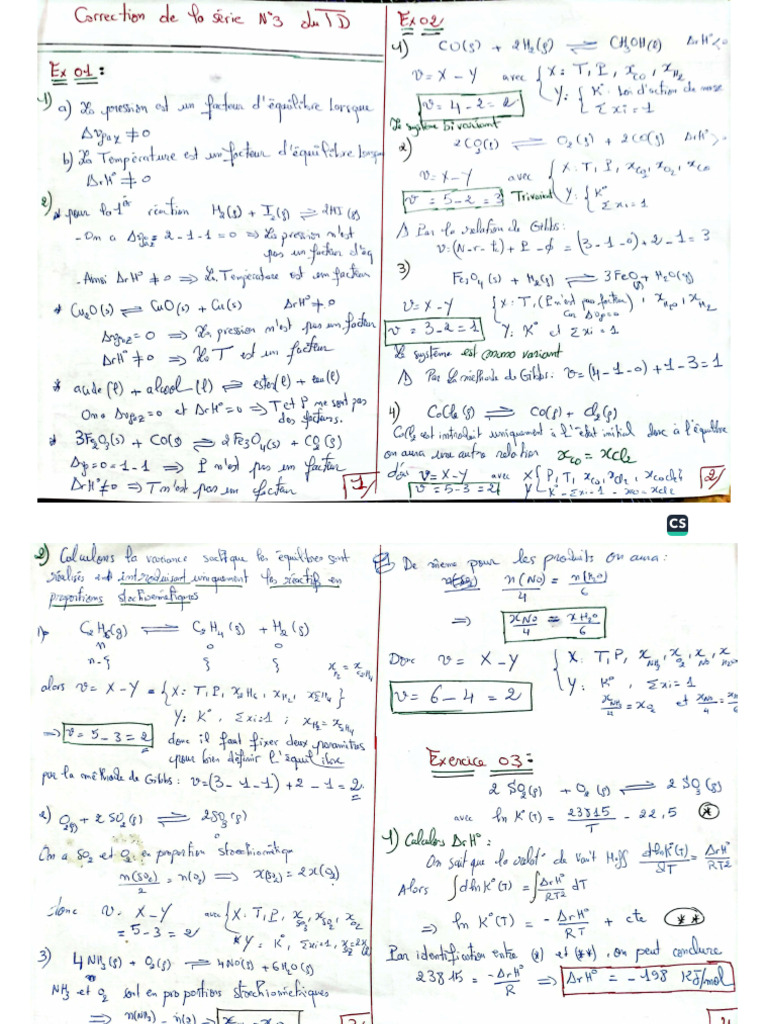 Correction de la série N°3 du TD
Ex 01 :
1) a) La pression est un facteur d'équilibre lorsque
Δνgaz ≠ 0
b) La Température est un facteur d'équilibre lorsque
ΔrH° ≠ 0
2) * pour la 1ère réaction H2(g) + I2(g) ⇌ 2HI(g)
- On a Δνgaz = 2-1-1 = 0 ⟹ La pression n'est
pas un facteur d'éq
- Ainsi ΔrH° ≠ 0 ⟹ La Température est un facteur
* Cu2O(s) ⇌ CuO(s) + Cu(s) ΔrH° ≠ 0
Δνgaz = 0 ⟹ La pression n'est pas un facteur
ΔrH° ≠ 0 ⟹ La T est un facteur
* acide(l) + alcool(l) ⇌ ester(l) + eau(l)
On a Δνgaz = 0 et ΔrH° = 0 ⟹ T et P ne sont pas
des facteurs.
* 3Fe2O3(s) + CO(g) ⇌ 2Fe3O4(s) + CO2(g)
Δν = 0 = 1-1 ⟹ P n'est pas un facteur
ΔrH° ≠ 0 ⟹ T n'est pas un facteur
1/
Ex 02
1) CO(g) + 2H2(g) ⇌ CH3OH(l) ΔrH° < 0
v = X - Y avec { X : T, P, xCO, xH2
Y : { K° : Loi d'action de masse
Σxi = 1
v = 4-2 = 2
Le système bivariant
2) 2CO2(g) ⇌ O2(g) + 2CO(g) ΔrH° >
v = X - Y avec { X : T, P, xCO2, xO2, xCO
v = 5-2 = 3 Trivariant Y : { K°
Σxi = 1
Δ Par la relation de Gibbs :
v = (N-r-t) + P - φ = (3-1-0) + 2-1 = 3
3)
Fe3O4(s) + H2(g) ⇌ 3FeO(s) + H2O(g)
v = X - Y { X : T, (P n'est pas facteur), xH2O, xH2
car Δν = 0
v = 3-2 = 1 Y : K° et Σxi = 1
Le système est monovariant
Δ Par la méthode de Gibbs : v = (4-1-0) + 1-3 = 1
4) CoCl2(g) ⇌ Co(g) + Cl2(g)
CoCl2 est introduit uniquement à l'état initial donc à l'équilibre
on aura une autre relation xco = xCl2
d'où v = X - Y avec X { P, T, xco, xCl2, xCoCl2
v = 5-3 = 2 Y K° - Σxi = 1 - xco = xCl2
2/
CS
2) Calculons la variance sachant que les équilibres sont
réalisés en introduisant uniquement les réactifs en
proportions stoechiométriques
1) C2H6(g) ⇌ C2H4(g) + H2(g)
n 0 0
n-ξ ξ ξ xH2 = xC2H4
alors v = X - Y = { X : T, P, xC2H6, xH2, xC2H4 }
Y : K°, Σxi = 1 ; xH2 = xC2H4
⟹ v = 5-3 = 2 donc il faut fixer deux paramètres
pour bien définir l'équilibre
par la méthode de Gibbs : v = (3-1-1) + 2-1 = 2
2) O2(g) + 2SO2(g) ⇌ 2SO3(g)
On a SO2 et O2 en proportion stoechiométrique
n(SO2)/2 = n(O2) ⟹ x(SO2) = 2x(O2)
donc v = X - Y avec { X : T, P, xSO3, xSO2, xO2
= 5-3 = 2 Y : K°, Σxi = 1, xSO2 = 2xO2
3) 4NH3(g) + O2(g) ⇌ 4NO(g) + 6H2O(g)
NH3 et O2 sont en proportions stoechiométriques
⟹ n(NH3) = n(O2) ⟹
De même pour les produits on aura :
n(NO)/4 = n(H2O)/6
⟹ xNO/4 = xH2O/6
Donc v = X - Y { X : T, P, xNH3, xO2, xNO, xH2O
v = 6-4 = 2 Y : K°, Σxi = 1
xNH3/4 = xO2 et xNO/4 = xH2O/6
Exercice 03 :
2SO2(g) + O2(g) ⇌ 2SO3(g)
avec ln K°(T) = 23815/T - 22,5 (*)
1) Calculons ΔrH° :
On sait que la relat° de Van't Hoff dlnK°(T)/dT = ΔrH°/RT2
Alors ∫dlnK°(T) = ∫ΔrH°/RT2 dT
⟹ ln K°(T) = -ΔrH°/RT + cte (**)
Par identification entre (*) et (**), on peut conclure
23815 = -ΔrH°/R ⟹ ΔrH° = -198 KJ/mol